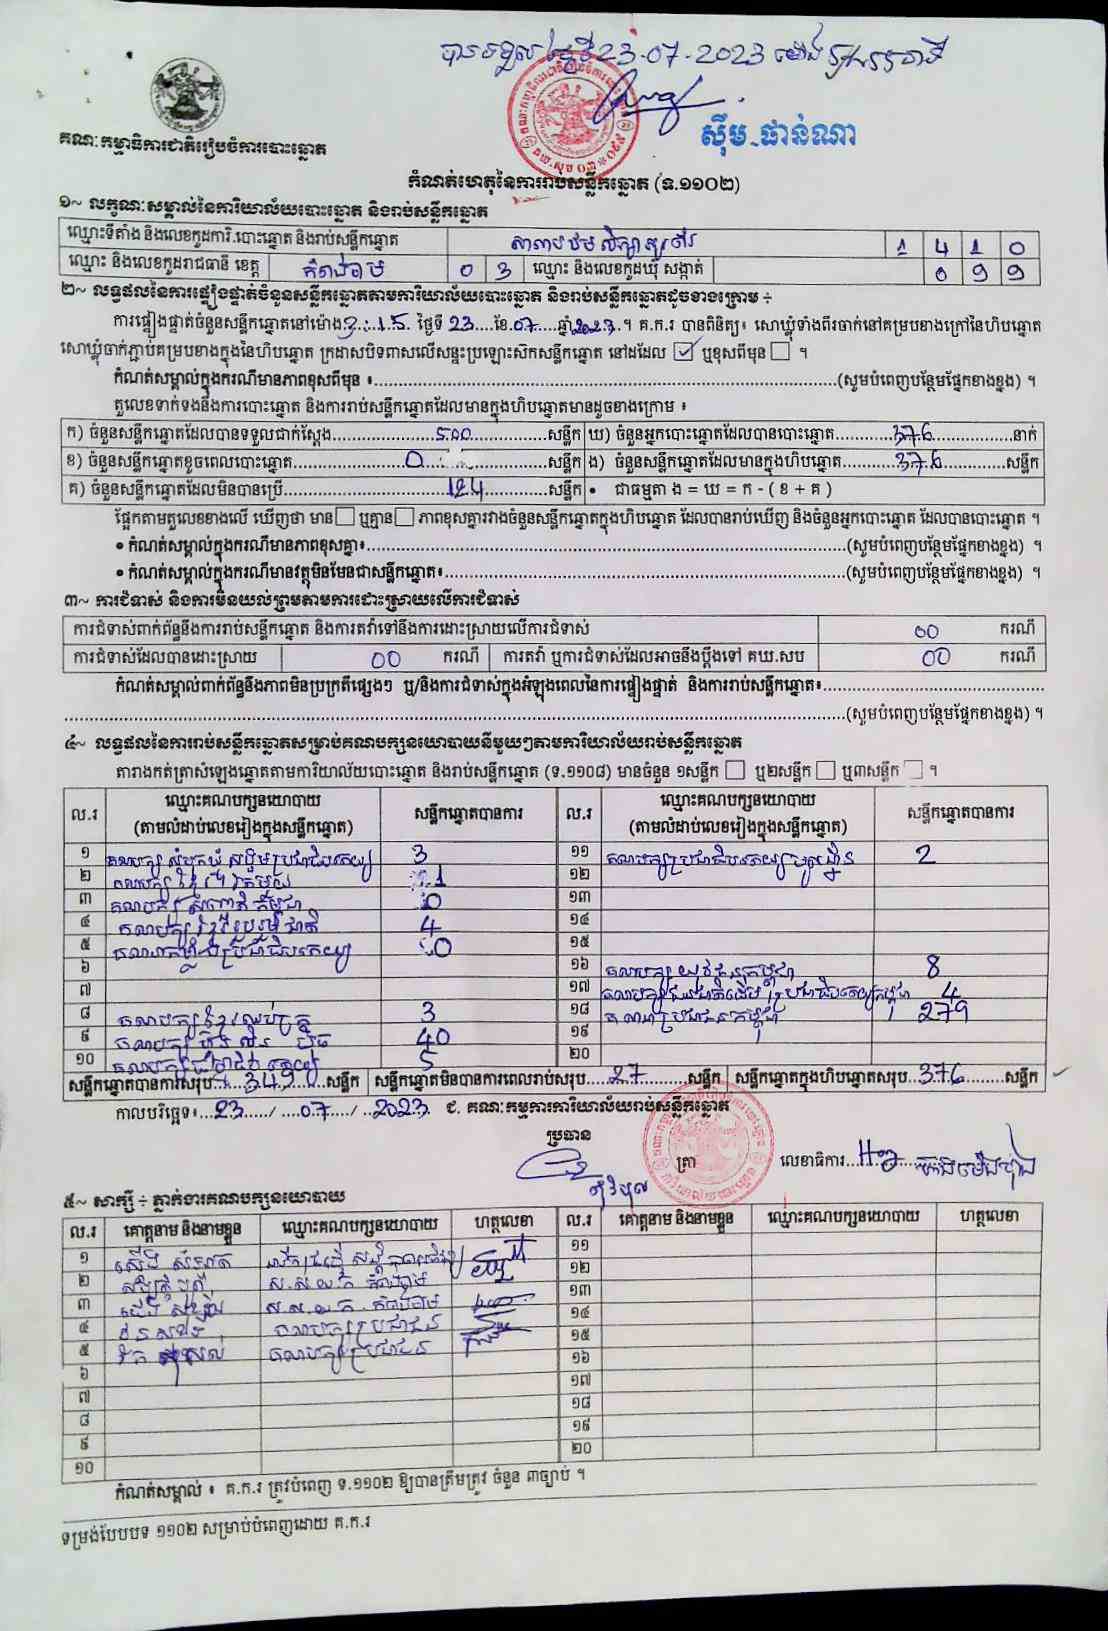 បានទទួល ថ្ងៃទី 23-07-2023 ម៉ោង
ស៊ឹម ផាន់ណា
គណៈកម្មាធិការជាតិរៀបចំការបោះឆ្នោត
កំណត់ហេតុនៃការរាប់សន្លឹកឆ្នោត (ទ.១១០២)
១~ លក្ខណៈសម្គាល់នៃការិយាល័យបោះឆ្នោត និងរាប់សន្លឹកឆ្នោត
ឈ្មោះទីតាំង និងលេខកូដការិ.បោះឆ្នោត និងរាប់សន្លឹកឆ្នោត 1 4 1 0
ឈ្មោះ និងលេខកូដរាជធានី ខេត្ត កំពង់ចាម 0 3 ឈ្មោះ និងលេខកូដឃុំ សង្កាត់ 0 9 9
២~ លទ្ធផលនៃការផ្ទៀងផ្ទាត់ចំនួនសន្លឹកឆ្នោតតាមការិយាល័យបោះឆ្នោត និងរាប់សន្លឹកឆ្នោតដូចខាងក្រោម ÷
ការផ្ទៀងផ្ទាត់ចំនួនសន្លឹកឆ្នោតនៅម៉ោង 3:15 ថ្ងៃទី 23 ខែ 07 ឆ្នាំ 2023 ។ គ.ក.រ បានពិនិត្យ៖ សោឃ្លុំទាំងពីរចាក់នៅគម្របខាងក្រៅនៃហិបឆ្នោត
សោឃ្លុំចាក់ភ្ជាប់គម្របខាងក្នុងនៃហិបឆ្នោត ក្រដាសបិទពាសលើសន្ទះប្រឡោះស៊កសន្លឹកឆ្នោត នៅដដែល ☑ ឬខុសពីមុន ☐ ។
កំណត់សម្គាល់ក្នុងករណីមានភាពខុសពីមុន ៖ (សូមបំពេញបន្ថែមផ្នែកខាងខ្នង) ។
តួលេខទាក់ទងនឹងការបោះឆ្នោត និងការរាប់សន្លឹកឆ្នោតដែលមានក្នុងហិបឆ្នោតមានដូចខាងក្រោម ៖
ក) ចំនួនសន្លឹកឆ្នោតដែលបានទទួលជាក់ស្តែង 500 សន្លឹក ឃ) ចំនួនអ្នកបោះឆ្នោតដែលបានបោះឆ្នោត 376 នាក់
ខ) ចំនួនសន្លឹកឆ្នោតខូចពេលបោះឆ្នោត 0 សន្លឹក ង) ចំនួនសន្លឹកឆ្នោតដែលមានក្នុងហិបឆ្នោត 376 សន្លឹក
គ) ចំនួនសន្លឹកឆ្នោតដែលមិនបានប្រើ 124 សន្លឹក • ជាធម្មតា ង = ឃ = ក - ( ខ + គ )
ផ្អែកតាមតួលេខខាងលើ ឃើញថា មាន ☐ ឬគ្មាន ☐ ភាពខុសគ្នារវាងចំនួនសន្លឹកឆ្នោតក្នុងហិបឆ្នោត ដែលបានរាប់ឃើញ និងចំនួនអ្នកបោះឆ្នោត ដែលបានបោះឆ្នោត ។
• កំណត់សម្គាល់ក្នុងករណីមានភាពខុសគ្នា៖ (សូមបំពេញបន្ថែមផ្នែកខាងខ្នង) ។
• កំណត់សម្គាល់ក្នុងករណីមានវត្ថុមិនមែនជាសន្លឹកឆ្នោត៖ (សូមបំពេញបន្ថែមផ្នែកខាងខ្នង) ។
៣~ ការជំទាស់ និងការមិនយល់ព្រមតាមការដោះស្រាយលើការជំទាស់
ការជំទាស់ពាក់ព័ន្ធនឹងការរាប់សន្លឹកឆ្នោត និងការតវ៉ាទៅនឹងការដោះស្រាយលើការជំទាស់ 00 ករណី
ការជំទាស់ដែលបានដោះស្រាយ 00 ករណី ការតវ៉ា ឬការជំទាស់ដែលអាចនឹងប្តឹងទៅ គឃ.សប 00 ករណី
កំណត់សម្គាល់ពាក់ព័ន្ធនឹងភាពមិនប្រក្រតីផ្សេងៗ ឬ/និងការជំទាស់ក្នុងអំឡុងពេលនៃការផ្ទៀងផ្ទាត់ និងការរាប់សន្លឹកឆ្នោត៖
(សូមបំពេញបន្ថែមផ្នែកខាងខ្នង) ។
៤~ លទ្ធផលនៃការរាប់សន្លឹកឆ្នោតសម្រាប់គណបក្សនយោបាយនីមួយៗតាមការិយាល័យរាប់សន្លឹកឆ្នោត
តារាងកត់ត្រាសំឡេងឆ្នោតតាមការិយាល័យបោះឆ្នោត និងរាប់សន្លឹកឆ្នោត (ទ.១១០៨) មានចំនួន ១សន្លឹក ☐ ឬ២សន្លឹក ☐ ឬ៣សន្លឹក ☐ ។
ល.រ ឈ្មោះគណបក្សនយោបាយ (តាមលំដាប់លេខរៀងក្នុងសន្លឹកឆ្នោត) សន្លឹកឆ្នោតបានការ ល.រ ឈ្មោះគណបក្សនយោបាយ (តាមលំដាប់លេខរៀងក្នុងសន្លឹកឆ្នោត) សន្លឹកឆ្នោតបានការ
១ គណបក្ស សំបុកឃ្មុំ សង្គមប្រជាធិបតេយ្យ 3 ១១ គណបក្សប្រជាធិបតេយ្យហ្វ៊ុនស៊ិនប៉ិច 2
២ គណបក្ស 1 ១២
៣ គណបក្ស សញ្ជាតិកម្ពុជា 0 ១៣
៤ គណបក្ស ខ្មែររួបរួមជាតិ 4 ១៤
៥ គណបក្សប្រជាធិបតេយ្យ 0 ១៥
៦ ១៦ គណបក្ស យុវជនកម្ពុជា 8
៧ ១៧ គណបក្សជនជាតិដើមប្រជាធិបតេយ្យកម្ពុជា 4
៨ គណបក្សខ្មែរឈប់ក្រ 3 ១៨ គណបក្សប្រជាជនកម្ពុជា 279
៩ គណបក្ស 40 ១៩
១០ គណបក្ស 5 ២០
សន្លឹកឆ្នោតបានការសរុប 349 សន្លឹក សន្លឹកឆ្នោតមិនបានការពេលរាប់សរុប 27 សន្លឹក សន្លឹកឆ្នោតក្នុងហិបឆ្នោតសរុប 376 សន្លឹក
កាលបរិច្ឆេទ៖ 23 / 07 / 2023 ជ. គណៈកម្មការការិយាល័យរាប់សន្លឹកឆ្នោត
ប្រធាន
ត្រា លេខាធិការ
៥~ សាក្សី ÷ ភ្នាក់ងារគណបក្សនយោបាយ
ល.រ គោត្តនាម និងនាមខ្លួន ឈ្មោះគណបក្សនយោបាយ ហត្ថលេខា ល.រ គោត្តនាម និងនាមខ្លួន ឈ្មោះគណបក្សនយោបាយ ហត្ថលេខា
១ ១១
២ ស.ស.យ.ក កំពង់ចាម ១២
៣ ស.ស.យ.ក. កំពង់ចាម ១៣
៤ គណបក្សប្រជាជន ១៤
៥ គណបក្សប្រជាជន ១៥
៦ ១៦
៧ ១៧
៨ ១៨
៩ ១៩
១០ ២០
កំណត់សម្គាល់ ៖ គ.ក.រ ត្រូវបំពេញ ទ.១១០២ ឱ្យបានត្រឹមត្រូវ ចំនួន ៣ច្បាប់ ។
ទម្រង់បែបបទ ១១០២ សម្រាប់បំពេញដោយ គ.ក.រ